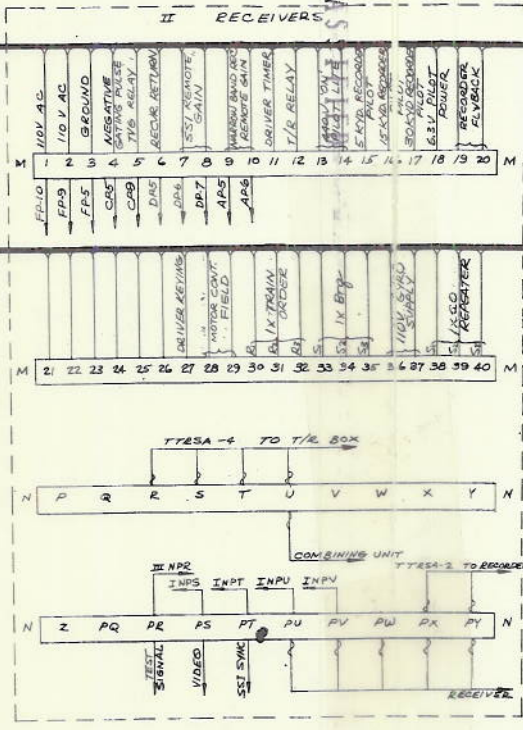 II RECEIVERS
110V AC
110 V AC
GROUND
NEGATIVE GATING PULSE
TVG RELAY
RECVR RETURN
SSI REMOTE GAIN
NARROW BAND REC REMOTE GAIN
DRIVER TIMER
T/R RELAY
5 KYD. RECORDER PILOT
15 KYD. RECORDER
30 KYD RECORDER PILOT
6.3 V PILOT POWER
RECORDER FLYBACK
M 1 2 3 4 5 6 7 8 9 10 11 12 13 14 15 16 17 18 19 20 M
FP-10
FP-9
FP-5
CP5
CP8
DP5
DP-6
DP-7
AP-5
AP-6
DRIVER KEYING
MOTOR CONT. FIELD
1X TRAIN ORDER
1X Brg
110V GYRO SUPPLY
1X CO REPEATER
R1 R2 R3 S1 S2 S3 S1 S2 S3
M 21 22 23 24 25 26 27 28 29 30 31 32 33 34 35 36 37 38 39 40 M
TTRSA-4 TO T/R BOX
N P Q R S T U V W X Y N
COMBINING UNIT
TTRSA-2 TO RECORDER
III NPR
INPS INPT INPU INPV
N Z PQ PR PS PT PU PV PW PX PY N
TEST SIGNAL
VIDEO
SSI SYNC
RECEIVER